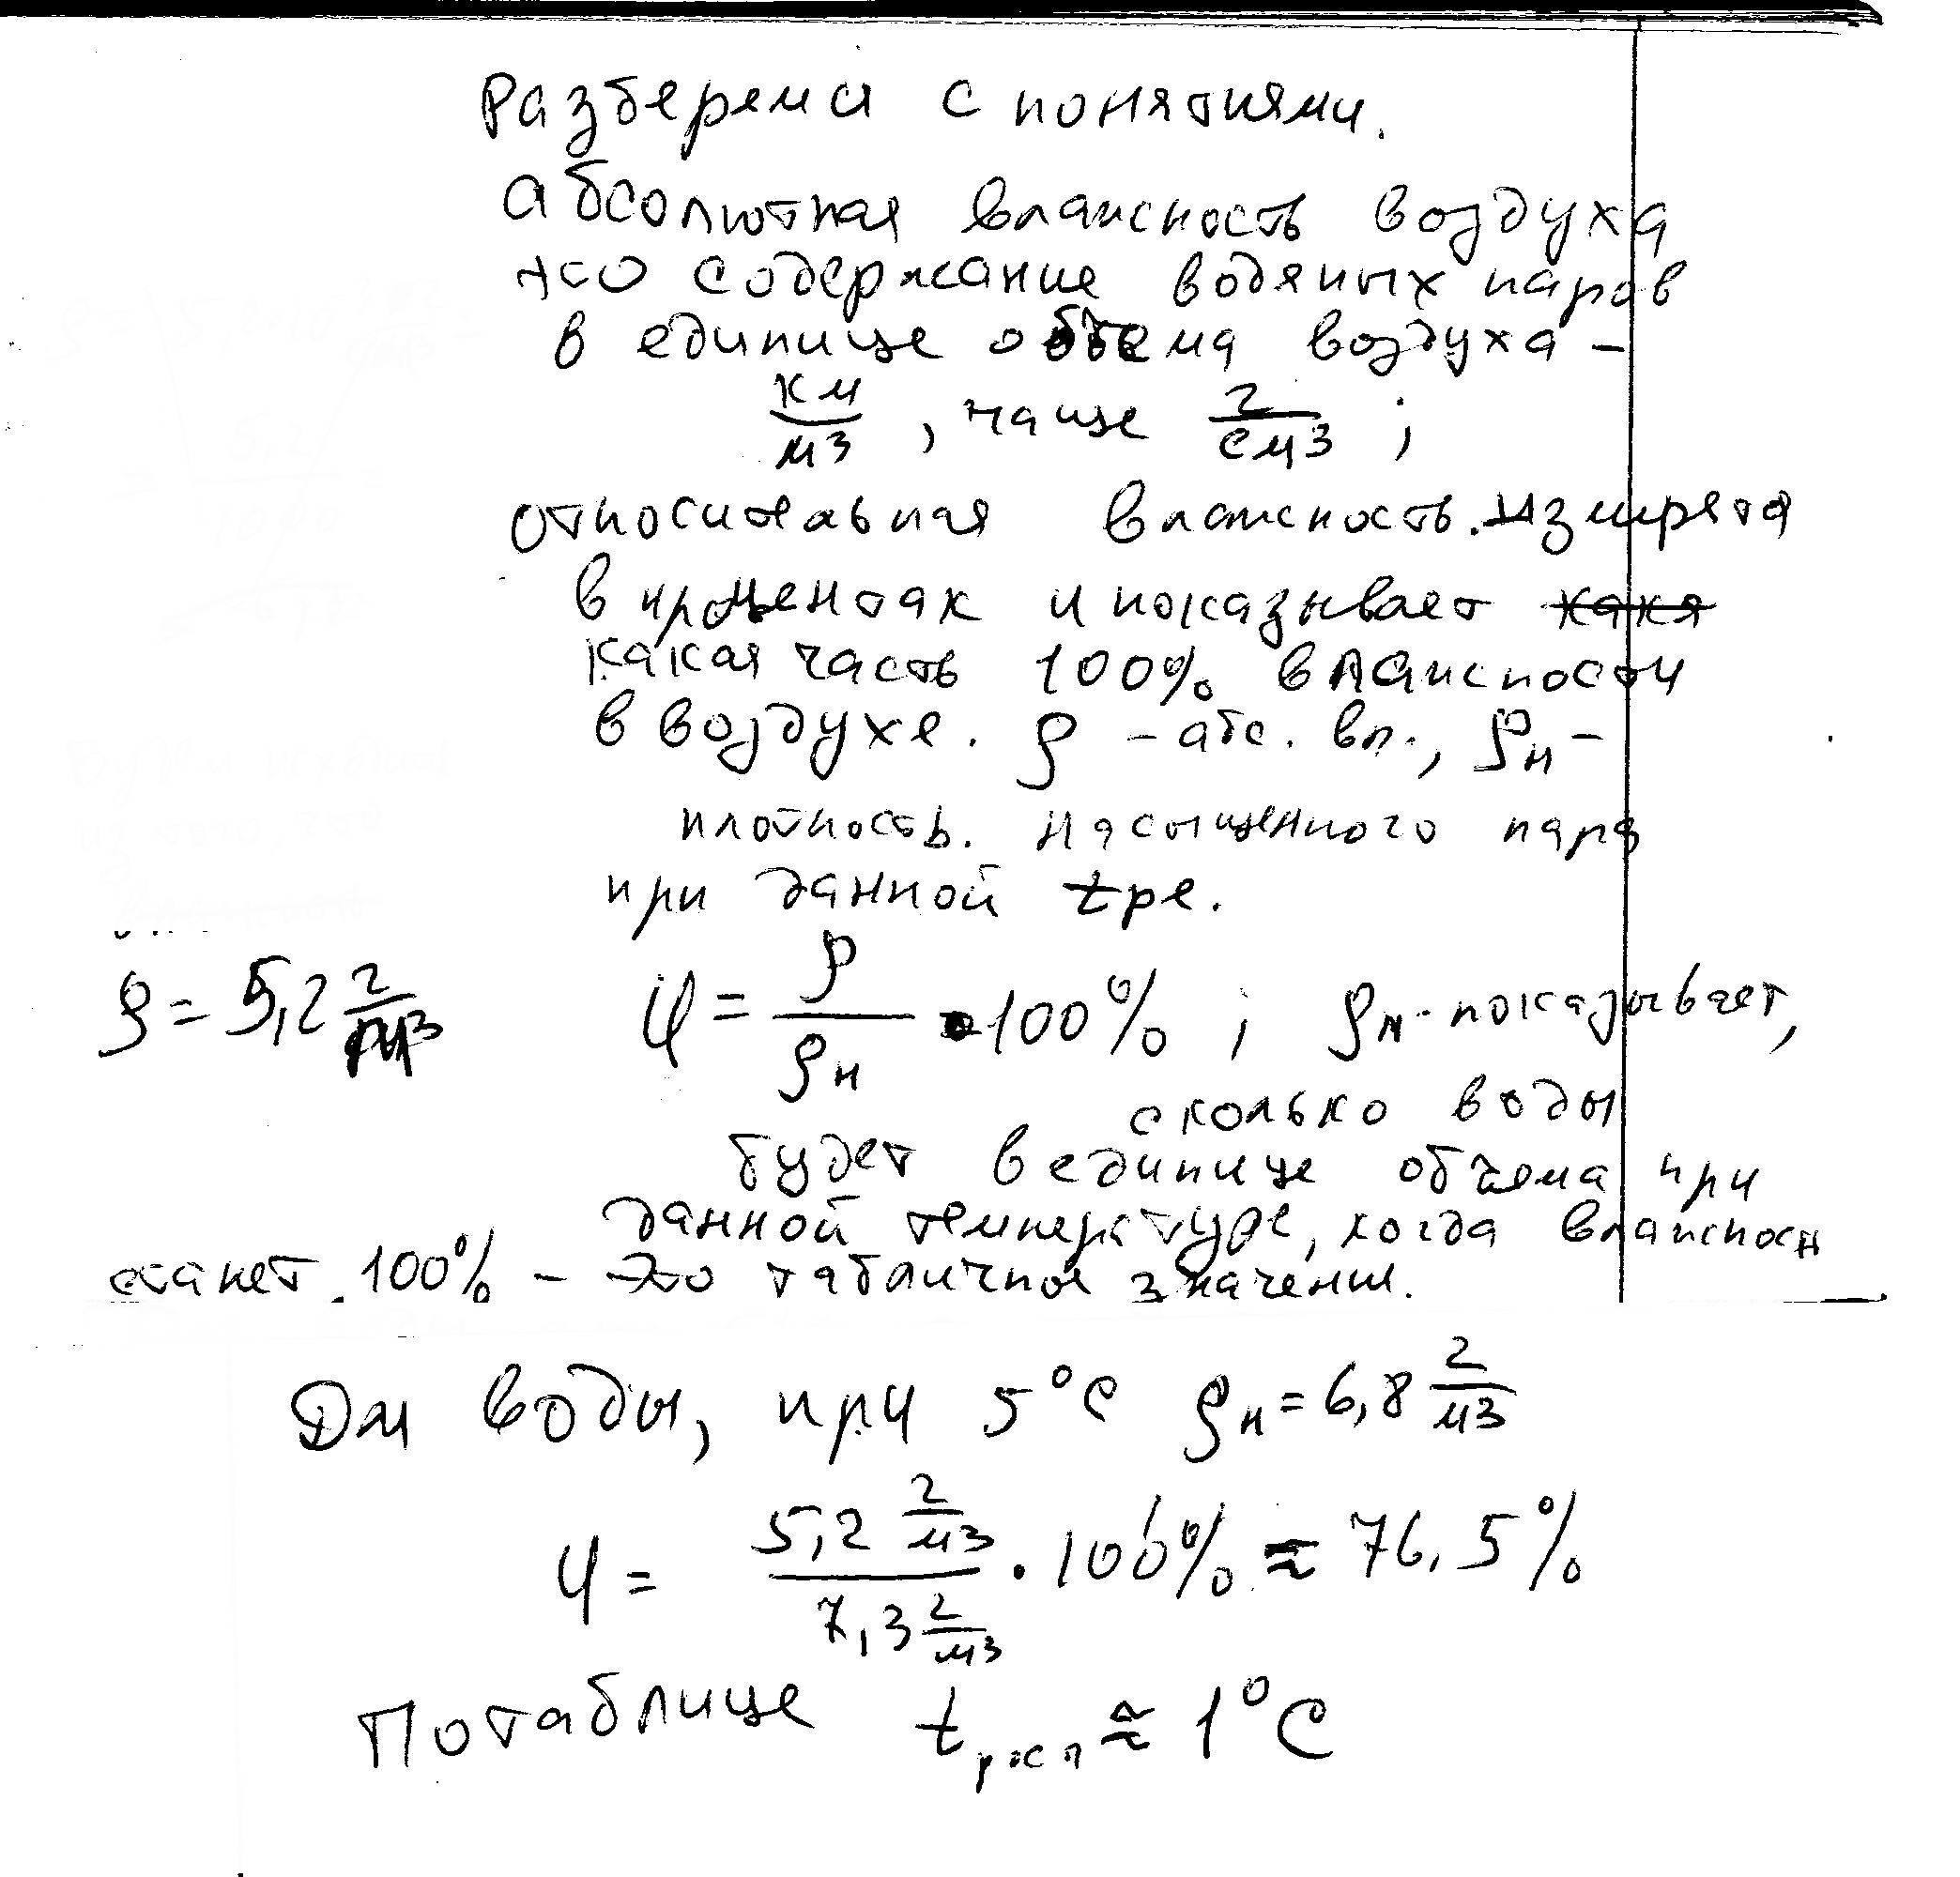 Разберемся с понятиями.
Абсолютная влажность воздуха
это содержание водяных паров
в единице объема воздуха –
км/м3, чаще г/см3 ;
относительная влажность. измрята
в процентах и показывает
какая часть 100% влажности
в воздухе. ρ – абс. вл., ρн –
плотность. насыщенного пара
при данной tре.
ρ = 5,2 г/м3 φ = ρ/ρн · 100% ; ρн - показывает,
сколько воды
будет в единице объема при
данной температуре, когда влажность
станет. 100% – это табличное значение.
Для воды, при 5°C ρн = 6,8 г/м3
φ = 5,2 г/м3 / 7,3 г/м3 · 100% ≈ 76,5%
По таблице tроса ≈ 1°C